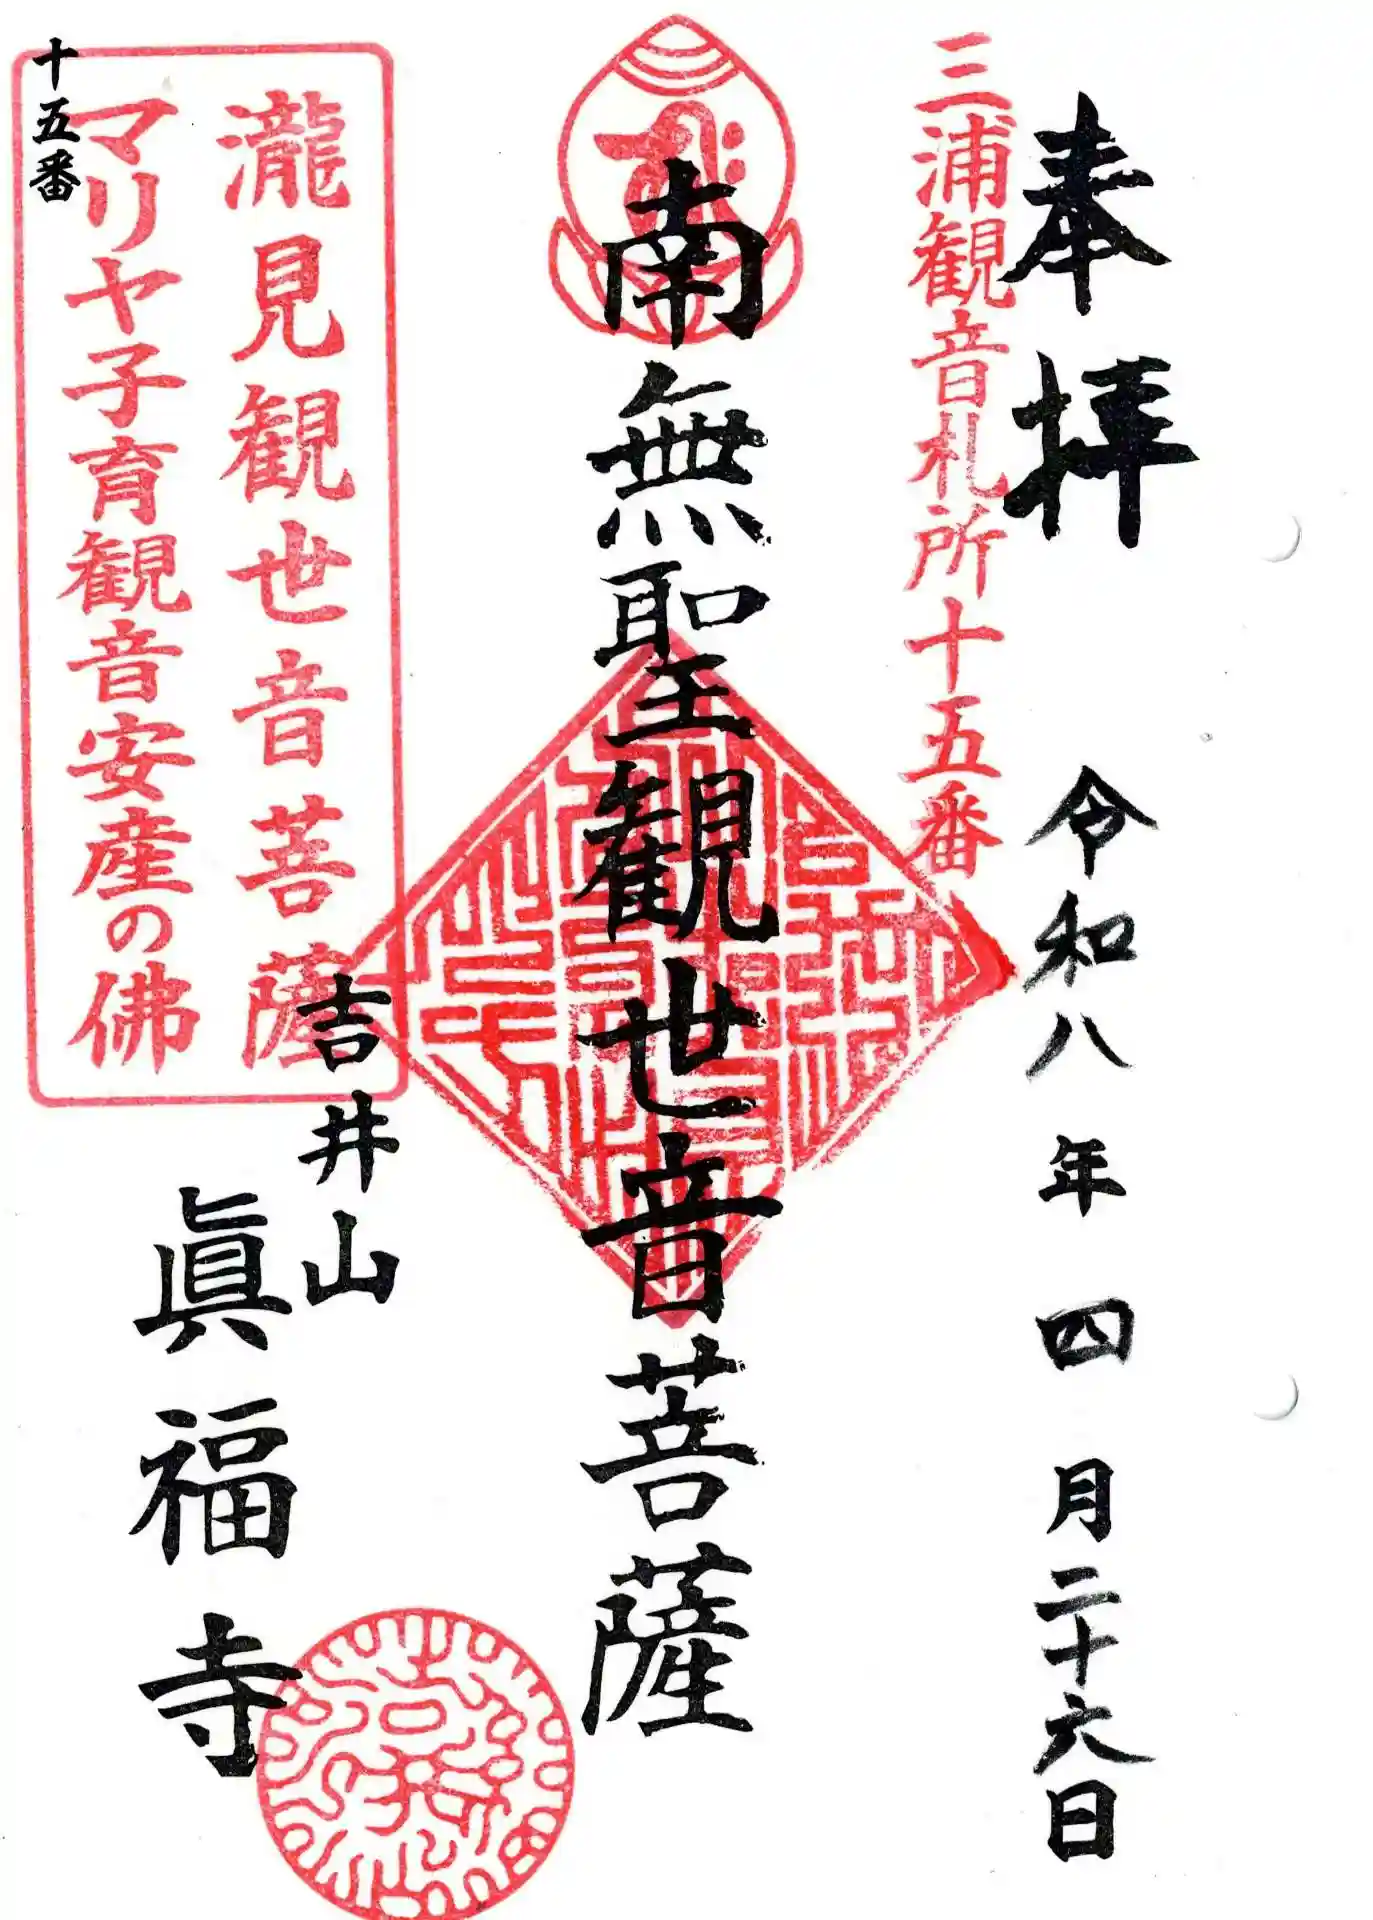 奉拝
令和八年四月二十六日
三浦観音札所十五番
南無聖観世音菩薩
瀧見観世音菩薩
マリヤ子育観音安産の佛
吉井山
眞福寺
十五番